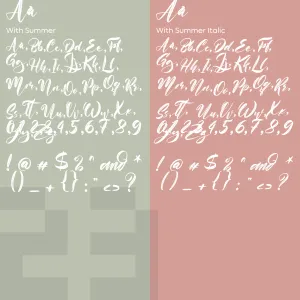 Aa
With Summer
Aa, Bb, Cc, Dd, Ee, Ff,
Gg, Hh, Ii, Jj, Kk, Ll,
Mm, Nn, Oo, Pp, Qq, Rr,
Ss, Tt, Uu, Vv, Ww, Xx,
Yy, Zz
0,1,2,3,4,5,6,7,8,9
! @ # $ % " and *
() _ + {} : " <> ?
Aa
With Summer Italic
Aa, Bb, Cc, Dd, Ee, Ff,
Gg, Hh, Ii, Jj, Kk, Ll,
Mm, Nn, Oo, Pp, Qq, Rr,
Ss, Tt, Uu, Vv, Ww, Xx,
Yy, Zz
0,1,2,3,4,5,6,7,8,9
! @ # $ % " and *
() _ + {} : " <> ?